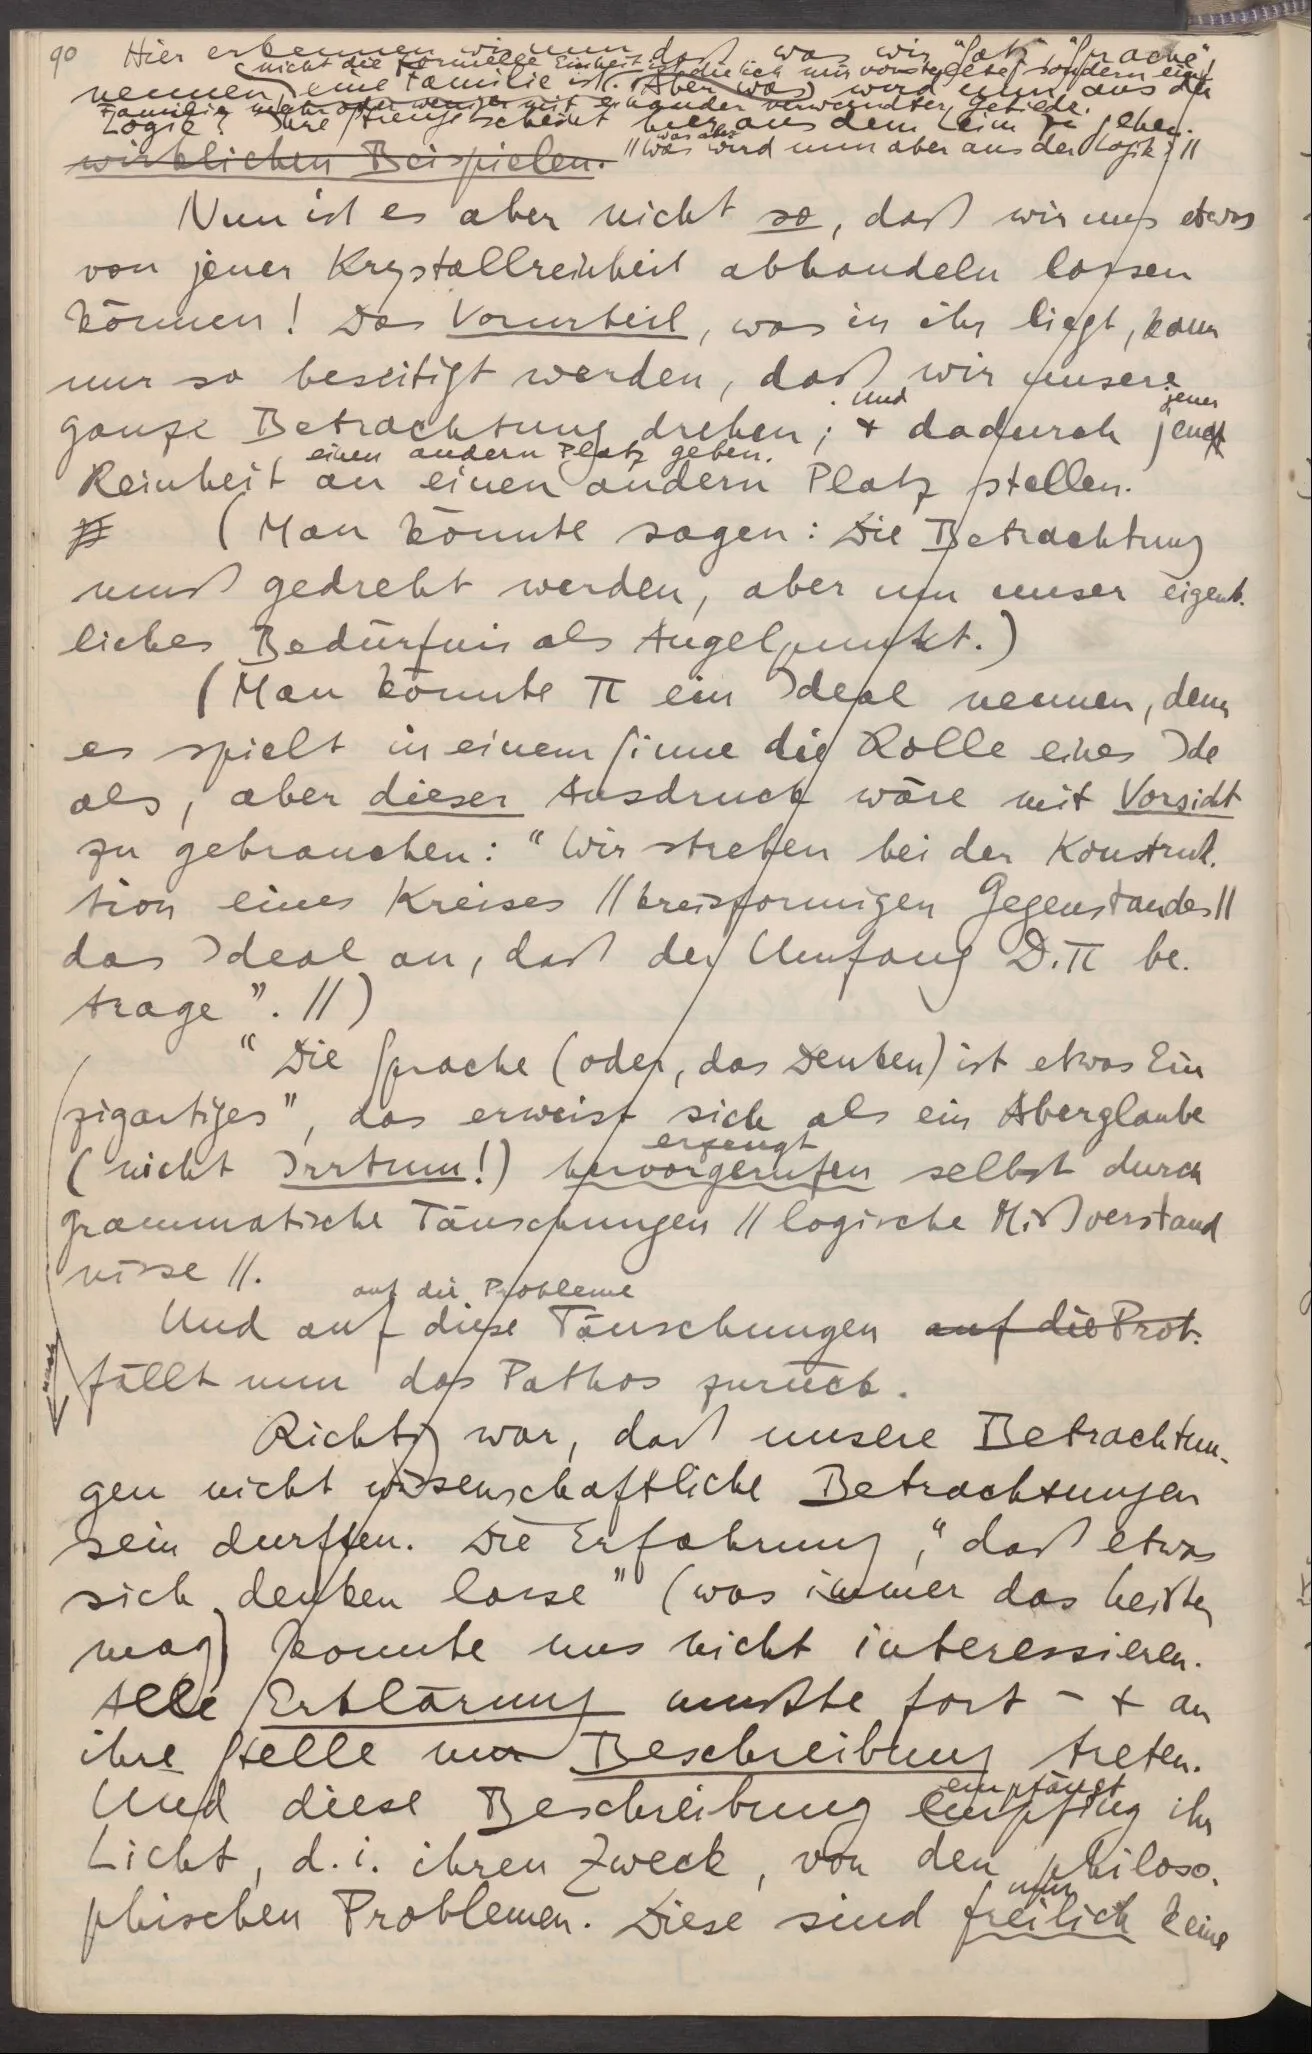 90 Hier erkennen wir nun daß was wir "Satz", "Sprache"
nicht die formelle Einheit ist die ich mir vorstellte, sondern eine
nennen, eine Familie ist. (Aber was) wird nun aus der
Familie mehr oder weniger mit einander verwandter Gebilde.
Logik? Ihre Strenge scheint hier aus dem Leim zu gehen.
was aber
wirklichen Beispielen. // Was wird nun aber aus der Logik? //
Nun ist es aber nicht so, daß wir uns etwas
von jener Krystallreinheit abhandeln lassen
können! Das Vorurteil, was in ihr liegt, kann
nur so beseitigt werden, daß wir unsere
. Und jener
ganze Betrachtung drehen; + dadurch jener
einen andern Platz geben.
Reinheit an einen andern Platz stellen.
(Man könnte sagen: Die Betrachtung
muß gedreht werden, aber um unser eigent-
liches Bedürfnis als Angelpunkt.)
(Man könnte π ein Ideal nennen, denn
es spielt in einem Sinne die Rolle eines Ide
als, aber dieser Ausdruck wäre mit Vorsicht
zu gebrauchen: "Wir streben bei der Konstruk-
tion eines Kreises // kreisförmigen Gegenstandes //
das Ideal an, daß der Umfang D.π be-
trage". //)
"Die Sprache (oder, das Denken) ist etwas Ein
zigartiges", das erweist sich als ein Aberglaube
erzeugt
(nicht Irrtum!) hervorgerufen selbst durch
grammatische Täuschungen // logische Mißverständ
nisse //.
auf die Probleme
Und auf diese Täuschungen auf die Prob.
fällt nun das Pathos zurück.
Richtig war, daß unsere Betrachtun-
gen nicht wissenschaftliche Betrachtungen
sein durften. Die Erfahrung, "daß etwas
sich denken lasse" (was immer das heißen
mag) konnte uns nicht interessieren.
Alle Erklärung mußte fort – + an
ihre Stelle nur Beschreibung treten.
empfängt
Und diese Beschreibung empfing ihr
Licht, d.i. ihren Zweck, von den philoso-
nun
phischen Problemen. Diese sind freilich keine